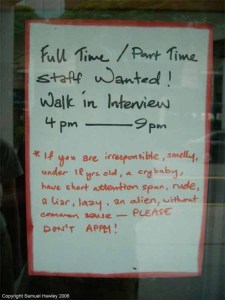 Full Time / Part Time
Staff Wanted!
Walk in Interview
4 pm — 9pm
* If you are irresponsible, smelly,
under 18 yrs old, a crybaby,
have short attention span, rude,
a liar, lazy, an alien, without
common sense — PLEASE
DON'T APPLY!
Copyright Samuel Hawley 2008